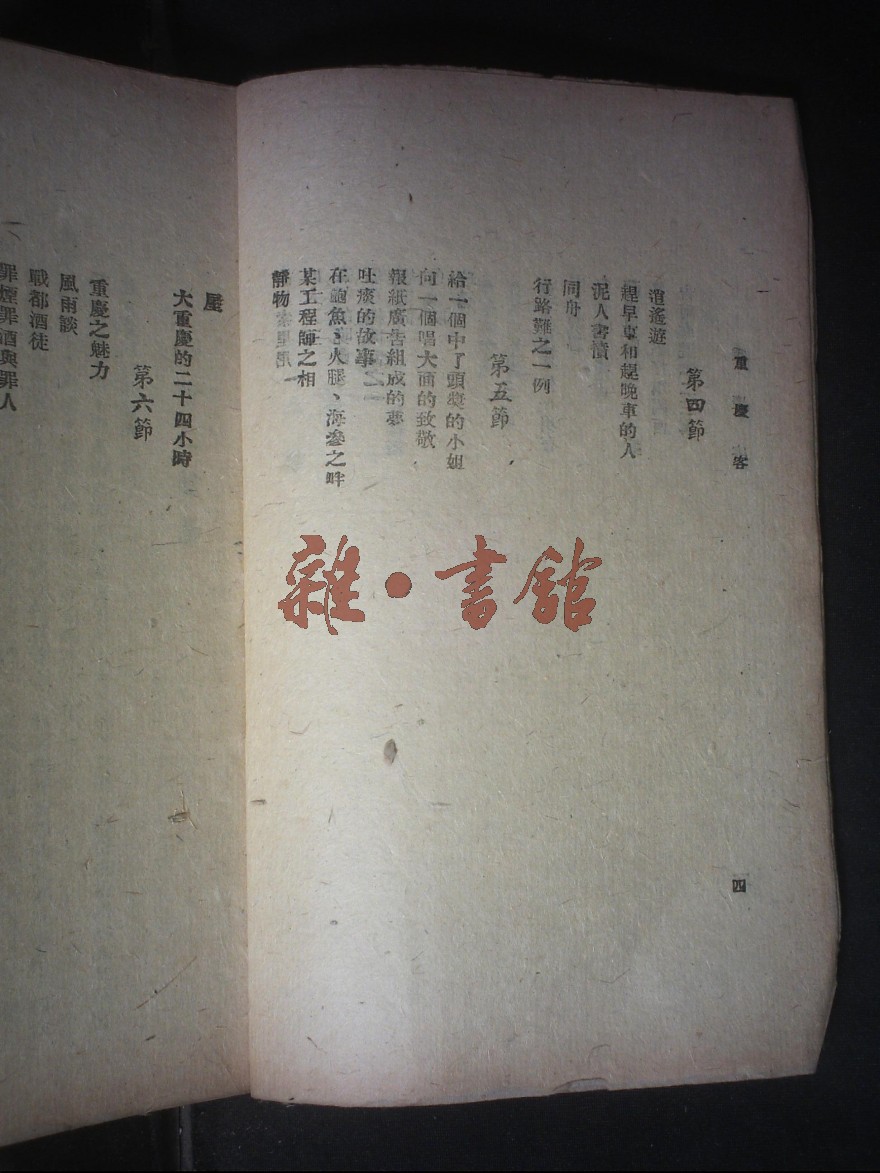 重慶客
四
第四節
逍遙遊
趕早車和趕晚車的人
泥人書憤
同舟
行路難之一例
第五節
給一個中了頭獎的小姐
向一個唱大面的致敬
報紙廣告組成的夢
吐痰的故事
在鮑魚、火腿、海參之畔
某工程師之相
靜物
屋
大重慶的二十四小時
第六節
重慶之魅力
風雨談
戰都酒徒
罪煙罪酒與罪人
雜·書館